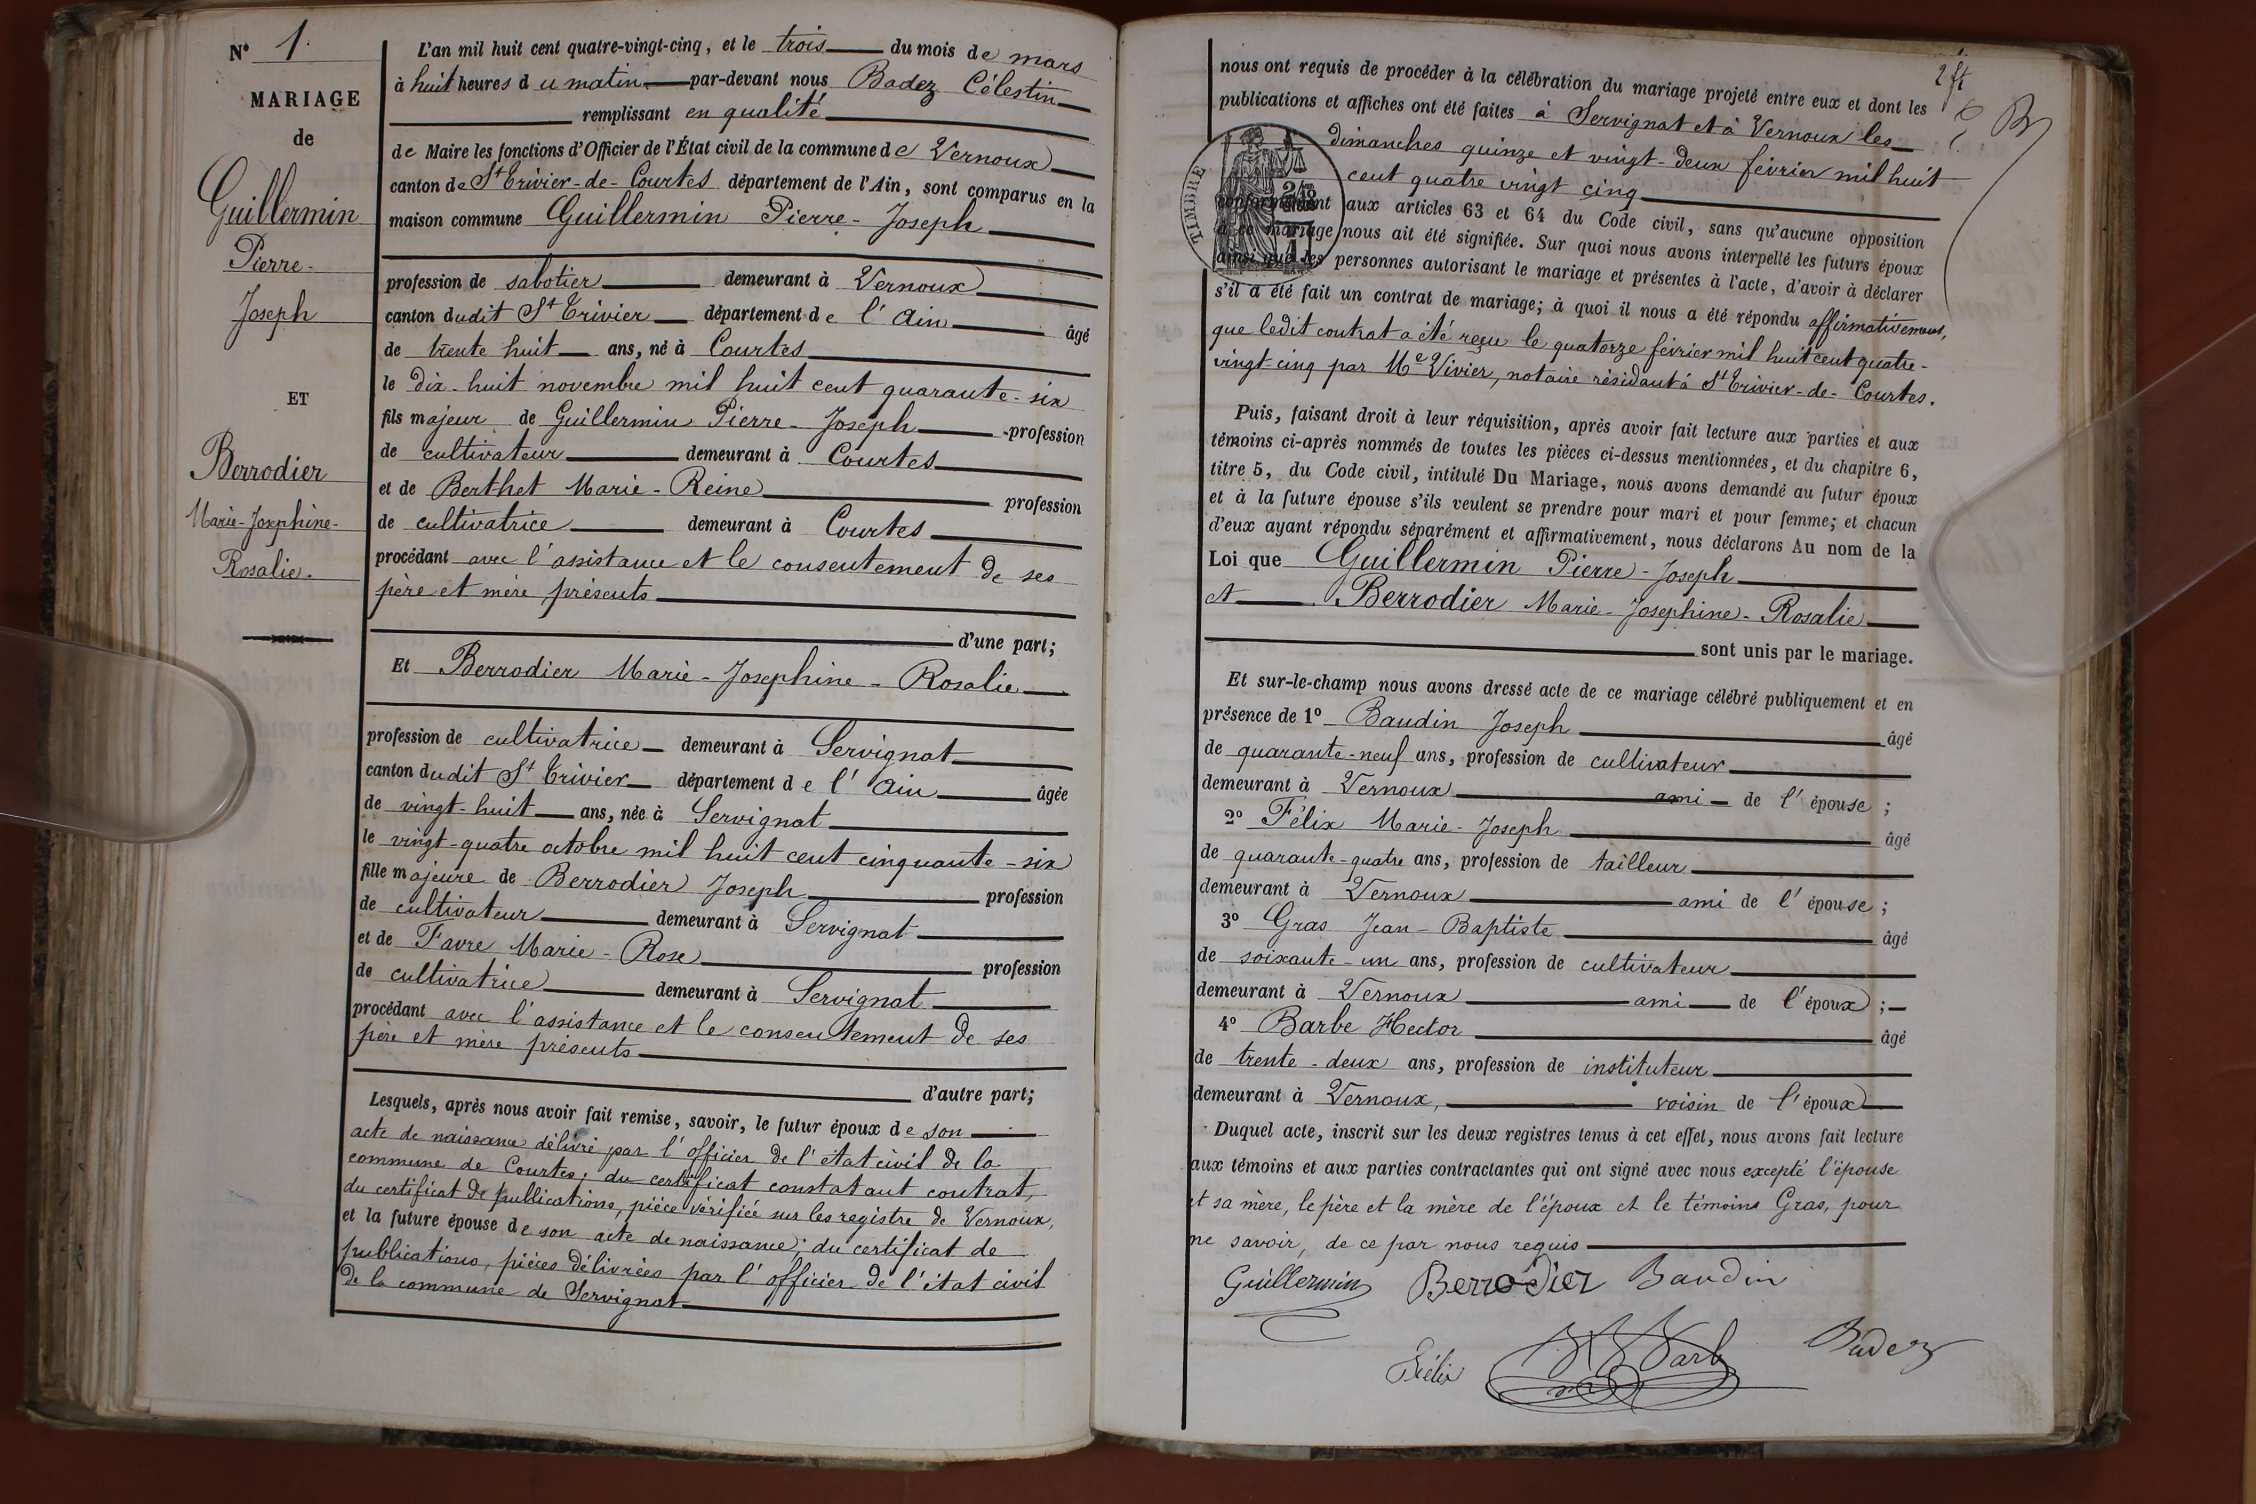 N° 1.
MARIAGE
de
Guillermin
Pierre-
Joseph
ET
Berrodier
Marie-Josephine-
Rosalie.
L'an mil huit cent quatre-vingt-cinq, et le trois du mois de mars
à huit heures du matin par-devant nous Badez Célestin
remplissant en qualité
de Maire les fonctions d'Officier de l'État civil de la commune de Vernoux
canton de St Trivier-de-Courtes département de l'Ain, sont comparus en la
maison commune Guillermin Pierre-Joseph
profession de sabotier demeurant à Vernoux
canton dudit St Trivier département de l'Ain âgé
de trente huit ans, né à Courtes
le dix-huit novembre mil huit cent quarante-six
fils majeur de Guillermin Pierre-Joseph profession
de cultivateur demeurant à Courtes
et de Berthet Marie-Reine profession
de cultivatrice demeurant à Courtes
procédant avec l'assistance et le consentement de ses
père et mère présents
d'une part;
Et Berrodier Marie-Josephine-Rosalie
profession de cultivatrice demeurant à Servignat
canton dudit St Trivier département de l'Ain âgée
de vingt-huit ans, née à Servignat
le vingt-quatre octobre mil huit cent cinquante-six
fille majeure de Berrodier Joseph profession
de cultivateur demeurant à Servignat
et de Favre Marie-Rose profession
de cultivatrice demeurant à Servignat
procédant avec l'assistance et le consentement de ses
père et mère présents
d'autre part;
Lesquels, après nous avoir fait remise, savoir, le futur époux de son
acte de naissance délivré par l'officier de l'état civil de la
commune de Courtes; du certificat constatant contrat,
du certificat de publications, pièce vérifiée sur les registre de Vernoux,
et la future épouse de son acte de naissance; du certificat de
publications, pièces délivrées par l'officier de l'état civil
de la commune de Servignat
2 ft
nous ont requis de procéder à la célébration du mariage projeté entre eux et dont les
publications et affiches ont été faites à Servignat et à Vernoux les
dimanches quinze et vingt-deux février mil huit
cent quatre vingt cinq
TIMBRE
conformément aux articles 63 et 64 du Code civil, sans qu'aucune opposition
à ce mariage nous ait été signifiée. Sur quoi nous avons interpellé les futurs époux
ainsi que les personnes autorisant le mariage et présentes à l'acte, d'avoir à déclarer
s'il a été fait un contrat de mariage; à quoi il nous a été répondu affirmativement,
que ledit contrat a été reçu le quatorze février mil huit cent quatre-
vingt-cinq par Me Vivier, notaire résidant à St Trivier-de-Courtes.
Puis, faisant droit à leur réquisition, après avoir fait lecture aux parties et aux
témoins ci-après nommés de toutes les pièces ci-dessus mentionnées, et du chapitre 6,
titre 5, du Code civil, intitulé Du Mariage, nous avons demandé au futur époux
et à la future épouse s'ils veulent se prendre pour mari et pour femme; et chacun
d'eux ayant répondu séparément et affirmativement, nous déclarons Au nom de la
Loi que Guillermin Pierre-Joseph
et Berrodier Marie-Josephine-Rosalie
sont unis par le mariage.
Et sur-le-champ nous avons dressé acte de ce mariage célébré publiquement et en
présence de 1° Baudin Joseph âgé
de quarante-neuf ans, profession de cultivateur
demeurant à Vernoux ami de l'épouse;
2° Félix Marie-Joseph âgé
de quarante-quatre ans, profession de tailleur
demeurant à Vernoux ami de l'épouse;
3° Gras Jean-Baptiste âgé
de soixante-un ans, profession de cultivateur
demeurant à Vernoux ami de l'époux;
4° Barbe Hector âgé
de trente-deux ans, profession de instituteur
demeurant à Vernoux, voisin de l'époux
Duquel acte, inscrit sur les deux registres tenus à cet effet, nous avons fait lecture
aux témoins et aux parties contractantes qui ont signé avec nous excepté l'épouse
et sa mère, le père et la mère de l'époux et le témoins Gras, pour
ne savoir, de ce par nous requis
Guillermin Berrodier Baudin
Félix Badez